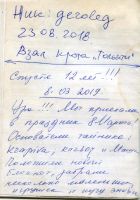 Ник: деговед
23.08.2018
Взял крота „Тольятти"
Спустя 12 лет!!!
8.03.2019
Ура!!! Мы приехали
в праздник 8 Марта!
Основатели тайника:
и Макс
Положили новый
блокнот, забрали
несколько
игрушек и